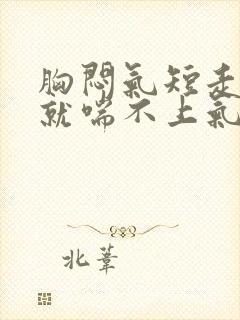 胸悶氣短走
就喘不上氣
北葦